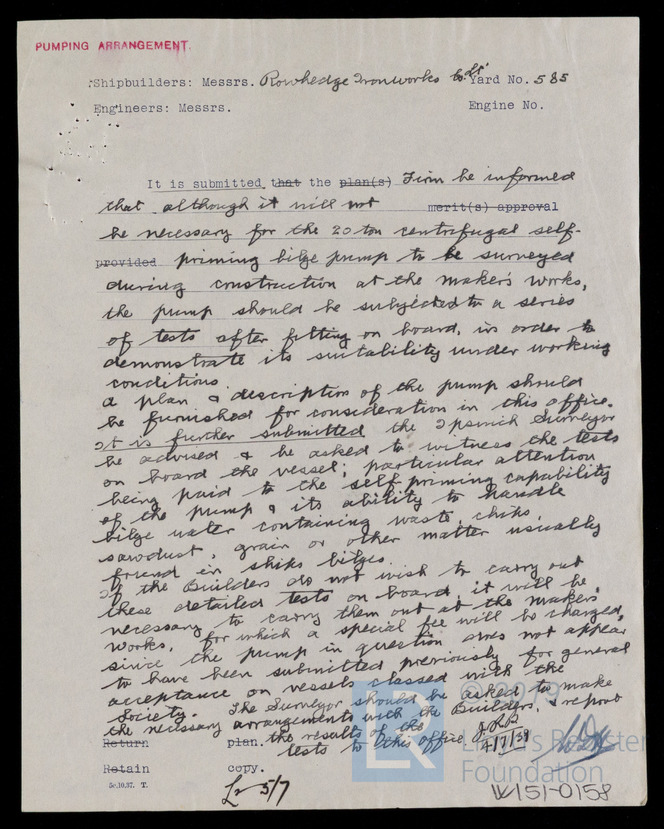 PUMPING ARRANGEMENT.
Shipbuilders: Messrs. Rowhedge Ironworks Co. Ld. Yard No. 585
Engineers: Messrs. Engine No.
It is submitted that the plan(s) Firm be informed
that although it will not merit(s) approval
be necessary for the 20 ton centrifugal self-
provided priming bilge pump to be surveyed
during construction at the maker's works,
the pump should be subjected to a series
of tests after fitting on board, in order to
demonstrate its suitability under working
conditions.
A plan & description of the pump should
be furnished for consideration in this office.
It is further submitted the Ipswich Surveyor
be advised & be asked to witness the tests
on board the vessel; particular attention
being paid to the self priming capability
of the pump & its ability to handle
bilge water containing waste, chips
sawdust, grain or other matter usually
found in ships bilges.
If the Builders do not wish to carry out
these detailed tests on board, it will be
necessary to carry them out at the makers
works, for which a special fee will be charged,
since the pump in question does not appear
to have been submitted previously for general
acceptance on vessels classed with the
Society. The Surveyor should be asked to make
the necessary arrangements with the Builders, & report
Return plan. the results of the
tests to this office
4/7/38
Retain copy.
Gc.10.37. T.
5/7
© 2019
Lloyd's Register
Foundation
W151-0158